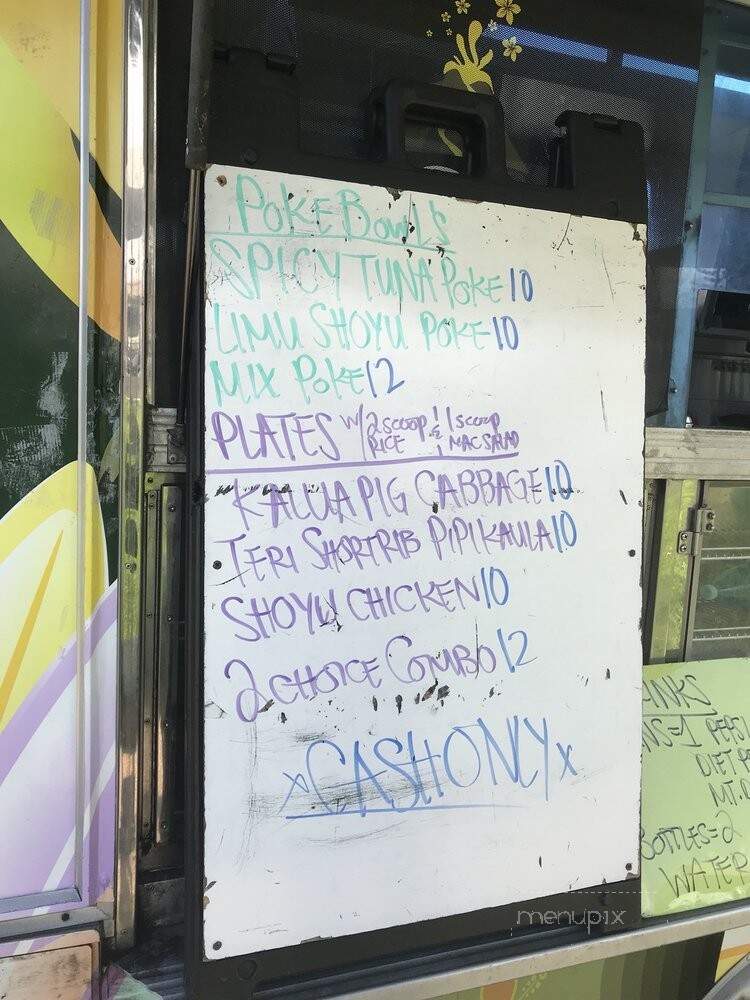 POKE BOWL'S
SPICY TUNA POKE 10
LIMU SHOYU POKE 10
MIX POKE 12
PLATES W/ 2 SCOOP RICE & 1 SCOOP MAC SALAD
KALUA PIG CABBAGE 10
TERI SHORTRIB PIPIKAULA 10
SHOYU CHICKEN 10
2 CHOICE COMBO 12
x CASH ONLY x
NS=1
DIET
BOTTLES=2
WATER
menupix